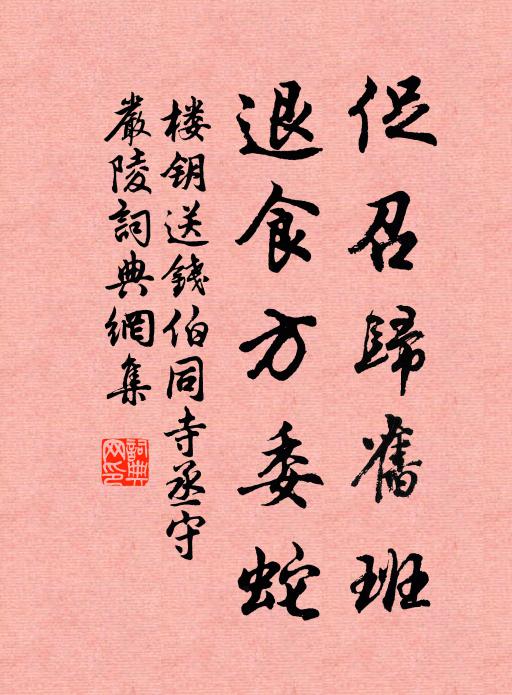 促召歸舊班
退食方委蛇
楼钥送錢伯同寺丞守
嚴陵詞典網集
詞典
网印